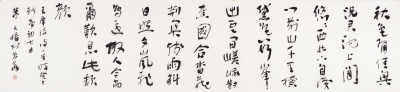 秋色有佳興
況君池上閒
悠悠西林下自識
門前山千里橫
黛色數峯
出雲間嵯峨對
秦國合沓藏
荊關殘雨斜
日照夕嵐飛
鳥還故人今尚
爾歎息此頹
顏
王摩詰詩